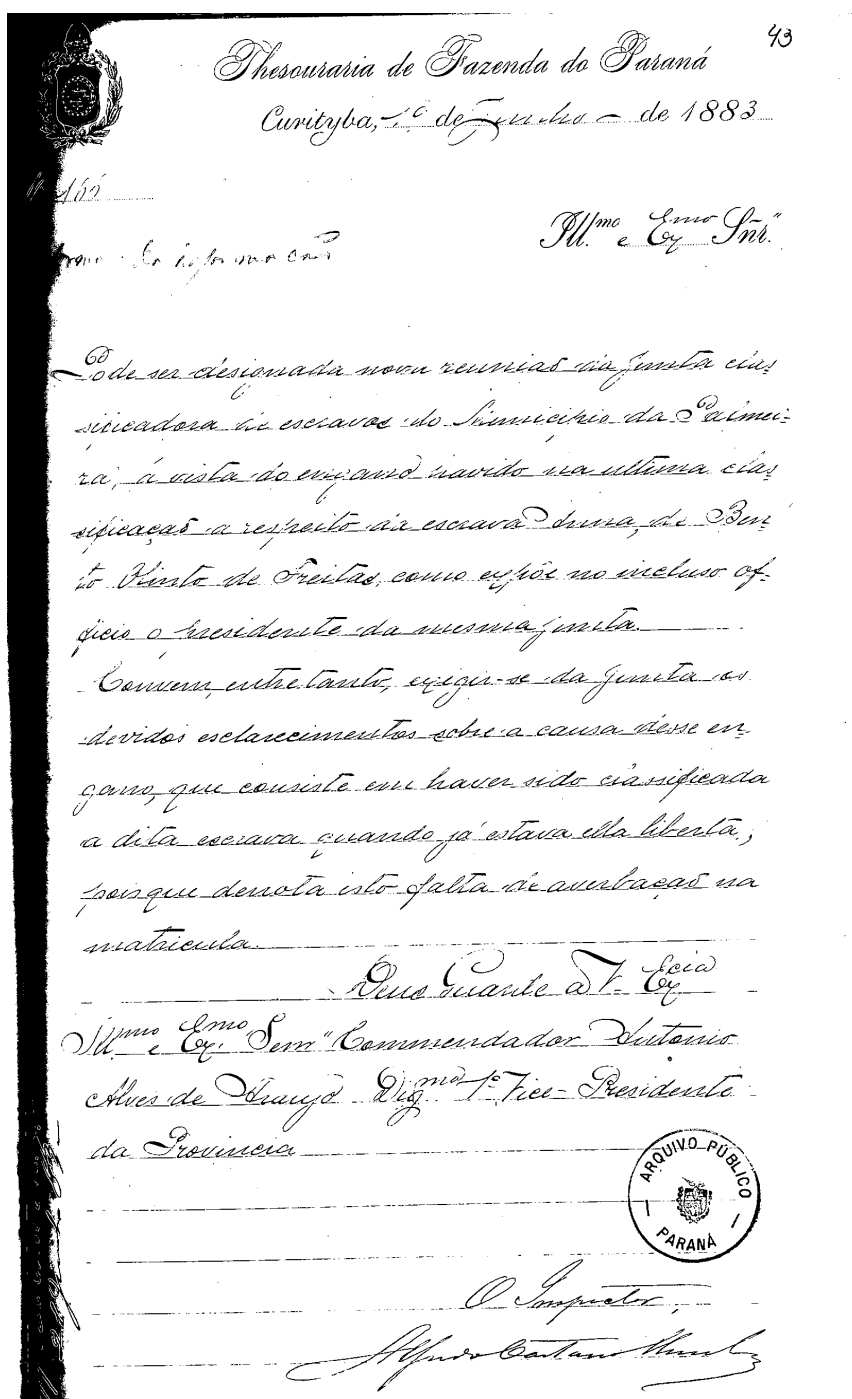 43
Thesouraria de Fazenda do Paraná
Curityba, 1º de Junho de 1883
Nº 155
Ill.mo e Ex.mo Snr.
Póde ser designada nova reunião da junta clas-
sificadora de escravos do Municipio da Palmei-
ra, á vista do engano havido na ultima clas-
sificação a respeito da escrava Anna, de Ben-
to Pinto de Freitas, como expõe no incluso of-
ficio o presidente da mesma junta.
Convem, entretanto, exigir-se da junta os
devidos esclarecimentos sobre a causa desse en-
gano, que consiste em haver sido classificada
a dita escrava quando já estava ella liberta,
poisque denota isto falta de averbação na
matricula.
Deus Guarde a V. Ex.cia
Ill.mo e Ex.mo Senr. Commendador Antonio
Alves de Araujo Dig.mo 1º Vice-Presidente
da Provincia
ARQUIVO PÚBLICO
PARANÁ
O Inspector,
Alfredo Caetano Munhoz